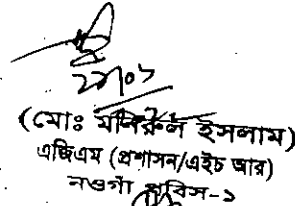 ২২/০১
(মোঃ মনিরুল ইসলাম)
এজিএম (প্রশাসন/এইচ আর)
নওগাঁ পবিস-১